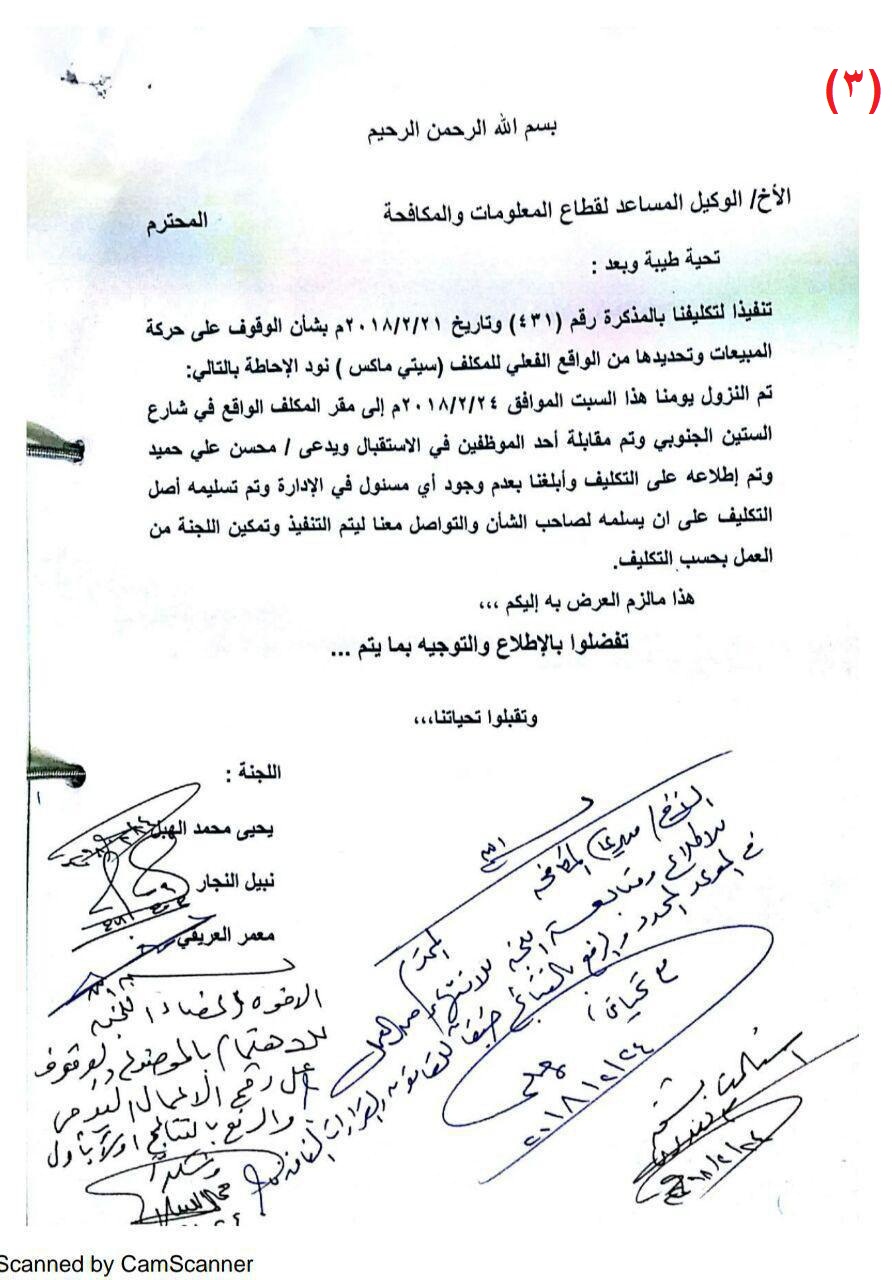 (٣)
بسم الله الرحمن الرحيم
الأخ/ الوكيل المساعد لقطاع المعلومات والمكافحة المحترم
تحية طيبة وبعد :
تنفيذا لتكليفنا بالمذكرة رقم (٤٣١) وتاريخ ٢٠١٨/٢/٢١م بشأن الوقوف على حركة
المبيعات وتحديدها من الواقع الفعلي للمكلف (سيتي ماكس ) نود الإحاطة بالتالي:
تم النزول يومنا هذا السبت الموافق ٢٠١٨/٢/٢٤م إلى مقر المكلف الواقع في شارع
الستين الجنوبي وتم مقابلة أحد الموظفين في الاستقبال ويدعى / محسن علي حميد
وتم إطلاعه على التكليف وأبلغنا بعدم وجود أي مسئول في الإدارة وتم تسليمه أصل
التكليف على ان يسلمه لصاحب الشأن والتواصل معنا ليتم التنفيذ وتمكين اللجنة من
العمل بحسب التكليف.
هذا مالزم العرض به إليكم ،،،
تفضلوا بالإطلاع والتوجيه بما يتم ...
وتقبلوا تحياتنا،،،
اللجنة :
يحيى محمد الهبل
نبيل النجار
معمر العريفي
الأخ / مدير عام المكافحة
للاطلاع ومتابعة اللجنة للانتهاء
في الموعد المحدد والرفع بالنتائج
مع تحياتي،
٢٠١٨/٢/٢٤
الاخوة / اعضاء اللجنة
للاهتمام بالموضوع والوقوف
على رقم الاعمال اليومي
والرفع بالنتائج اولاً بأول
وشكراً
Scanned by CamScanner